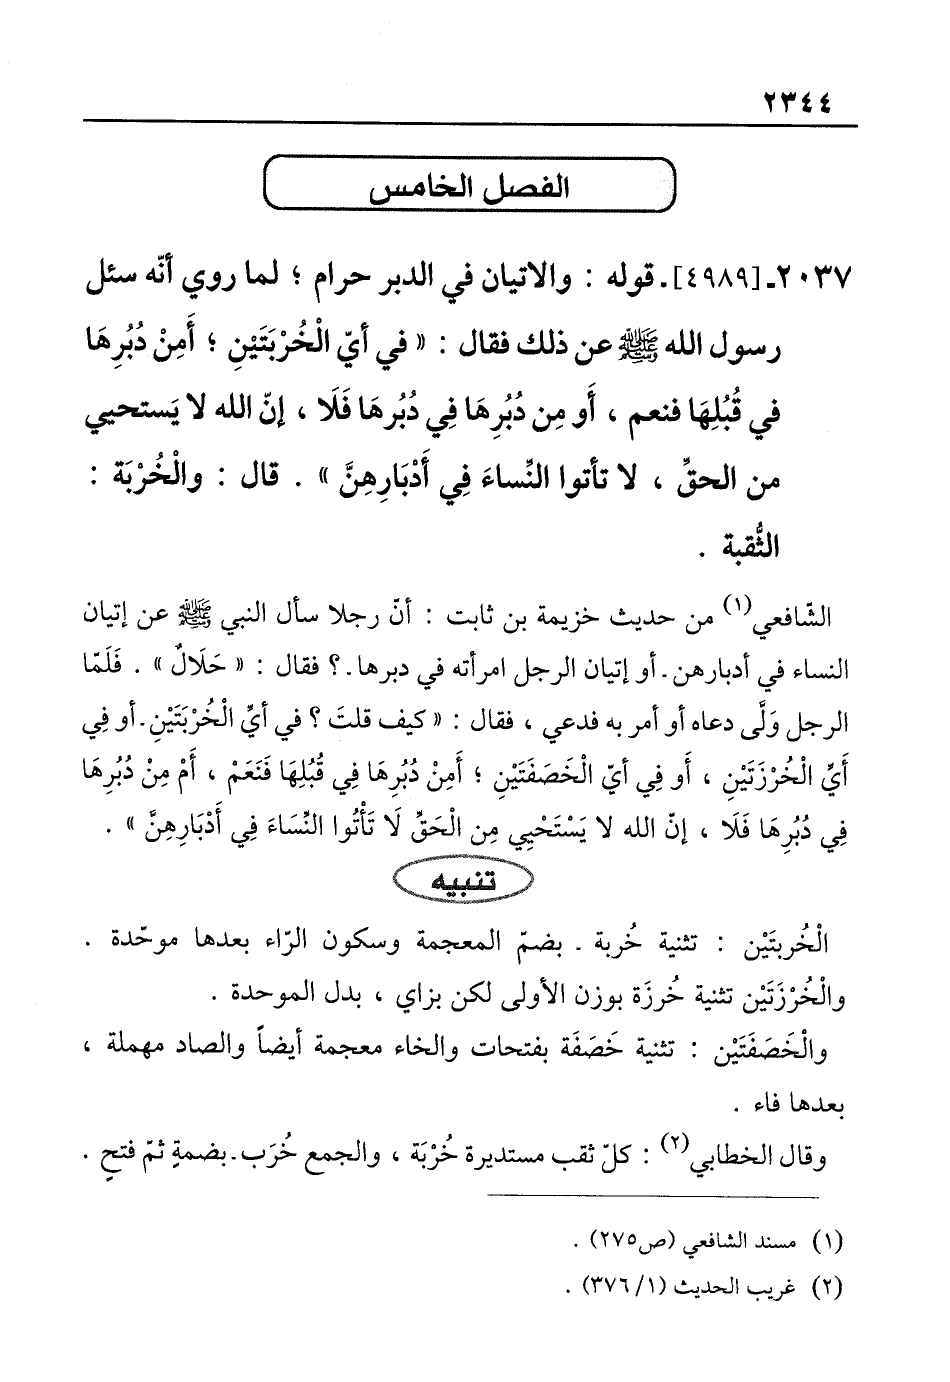 ٢٣٤٤
الفصل الخامس
٢٠٣٧ـ [٤٩٨٩]ـ قوله : والاتيان في الدبر حرام ؛ لما روي أنّه سئل
رسول الله ﷺ عن ذلك فقال : « في أيّ الْخُرْبَتَيْنِ ؛ أَمِنْ دُبُرِهَا
في قُبُلِهَا فنعم ، أَو مِن دُبُرِهَا فِي دُبُرِهَا فَلَا ، إنّ الله لا يَستحيي
من الحقِّ ، لا تأتوا النِّساءَ فِي أَدْبَارِهِنَّ » . قال : والْخُرْبَة :
الثُّقبة .
الشّافعي(١) من حديث خزيمة بن ثابت : أنّ رجلا سأل النبي ﷺ عن إتيان
النساء في أدبارهن ـ أو إتيان الرجل امرأته في دبرها ـ ؟ فقال : « حَلَالٌ » . فَلَمّا
الرجل وَلَّى دعاه أو أمر به فدعي ، فقال : « كيف قلتَ ؟ في أيِّ الْخُرْبَتَيْنِ ـ أو فِي
أَيِّ الْخُرْزَتَيْنِ ، أَو فِي أيّ الْخَصَفَتَيْنِ ؛ أَمِنْ دُبُرِهَا فِي قُبُلِهَا فَنَعَمْ ، أَمْ مِنْ دُبُرِهَا
فِي دُبُرِهَا فَلَا ، إنّ الله لا يَسْتَحْيِي مِن الْحَقِّ لَا تَأْتُوا النِّسَاءَ فِي أَدْبَارِهِنَّ » .
تنبيه
الْخُربتَيْن : تثنية خُربة ـ بضمّ المعجمة وسكون الرّاء بعدها موحّدة .
والْخُرْزَتَيْن تثنية خُرزَة بوزن الأولى لكن بزاي ، بدل الموحدة .
والْخَصَفَتَيْن : تثنية خَصَفَة بفتحات والخاء معجمة أيضاً والصاد مهملة ،
بعدها فاء .
وقال الخطابي(٢) : كلّ ثقب مستديرة خُرْبَة ، والجمع خُرَب ـ بضمةٍ ثمّ فتحٍ .
(١) مسند الشافعي (ص٢٧٥) .
(٢) غريب الحديث (١/ ٣٧٦) .